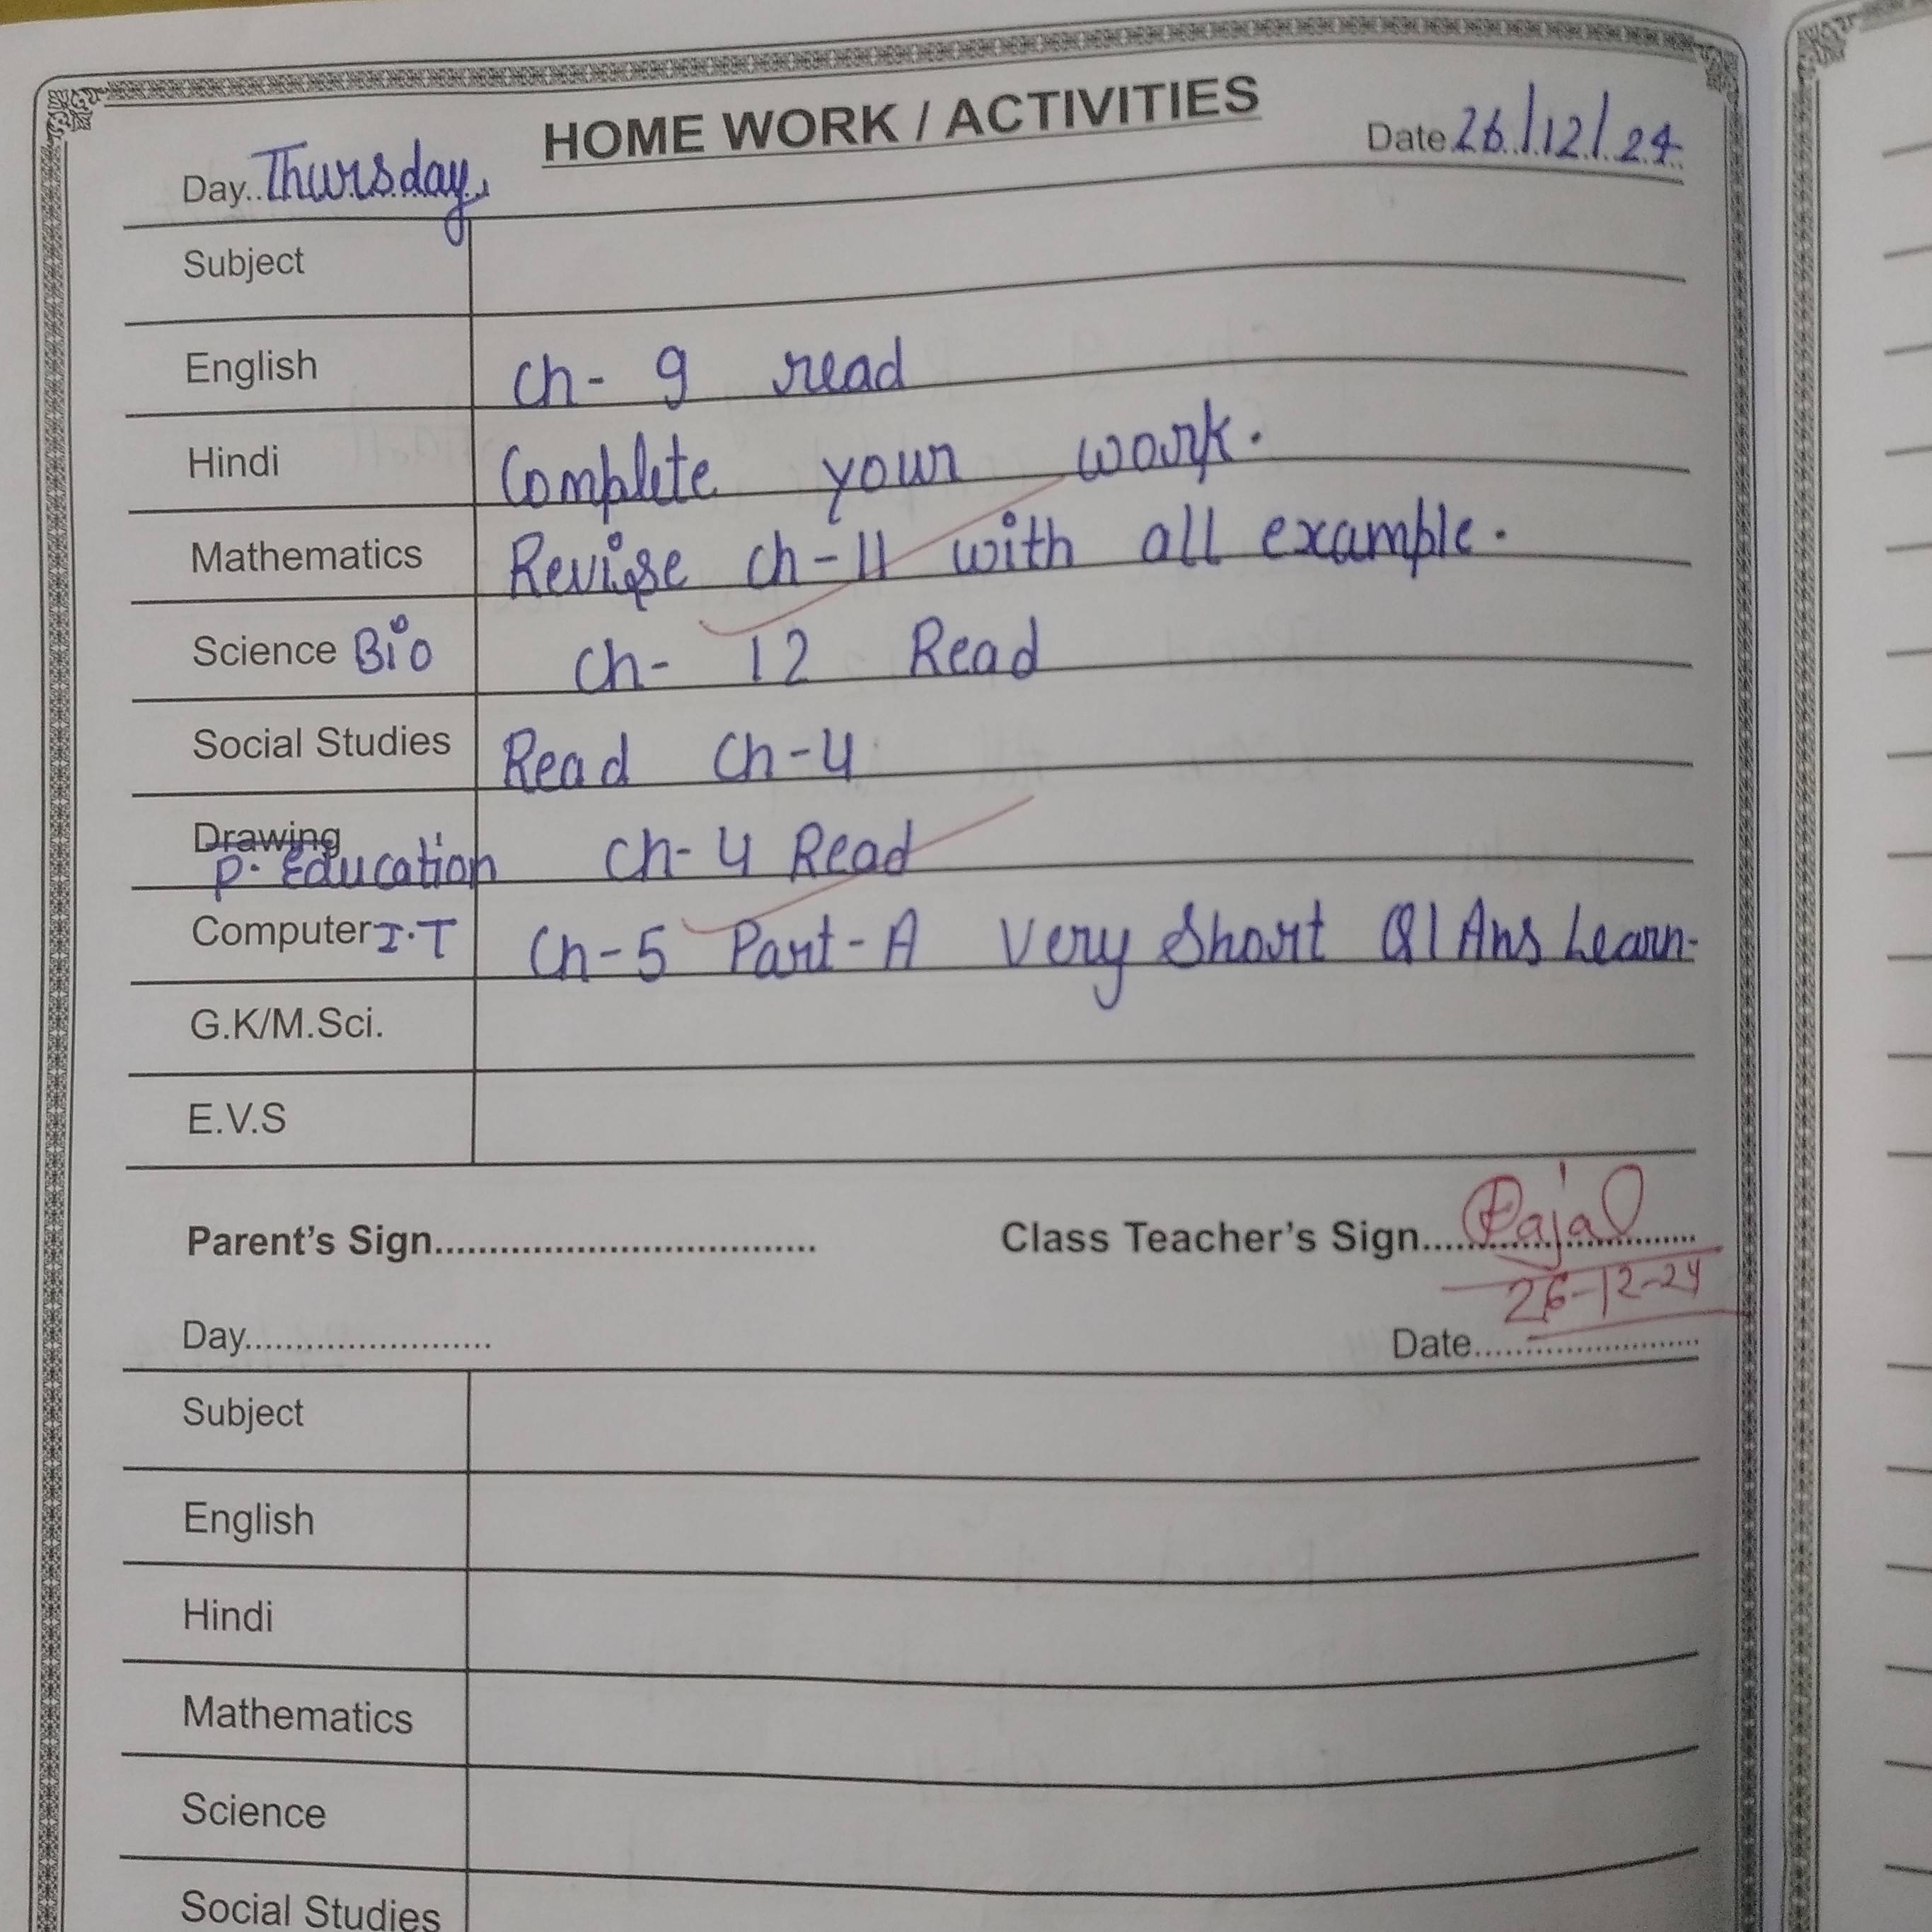 HOME WORK / ACTIVITIES
Day..Thursday, Date 26/12/24
Subject
English ch- 9 read
Hindi Complete your work.
Mathematics Revise ch-11 with all example.
Science Bio ch- 12 Read
Social Studies Read Ch-4
Drawing
P. Education Ch-4 Read
Computer I.T Ch-5 Part-A Very Short Q/Ans Learn-
G.K/M.Sci.
E.V.S
Parent's Sign................................... Class Teacher's Sign....
26-12-24
Day........................ Date........................
Subject
English
Hindi
Mathematics
Science
Social Studies